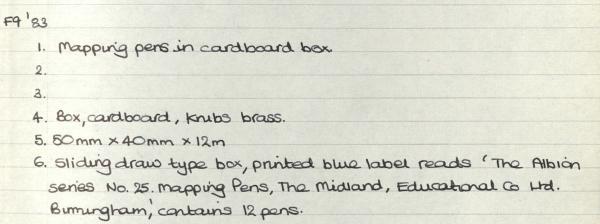 F9 '83
1. Mapping pens in cardboard box
2.
3.
4. Box, cardboard, knubs brass.
5. 50mm x 40mm x 12m
6. Sliding draw type box, printed blue label reads 'The Albion
series No. 25. Mapping Pens, The Midland, Educational Co Ltd.
Birmingham,' contains 12 pens.